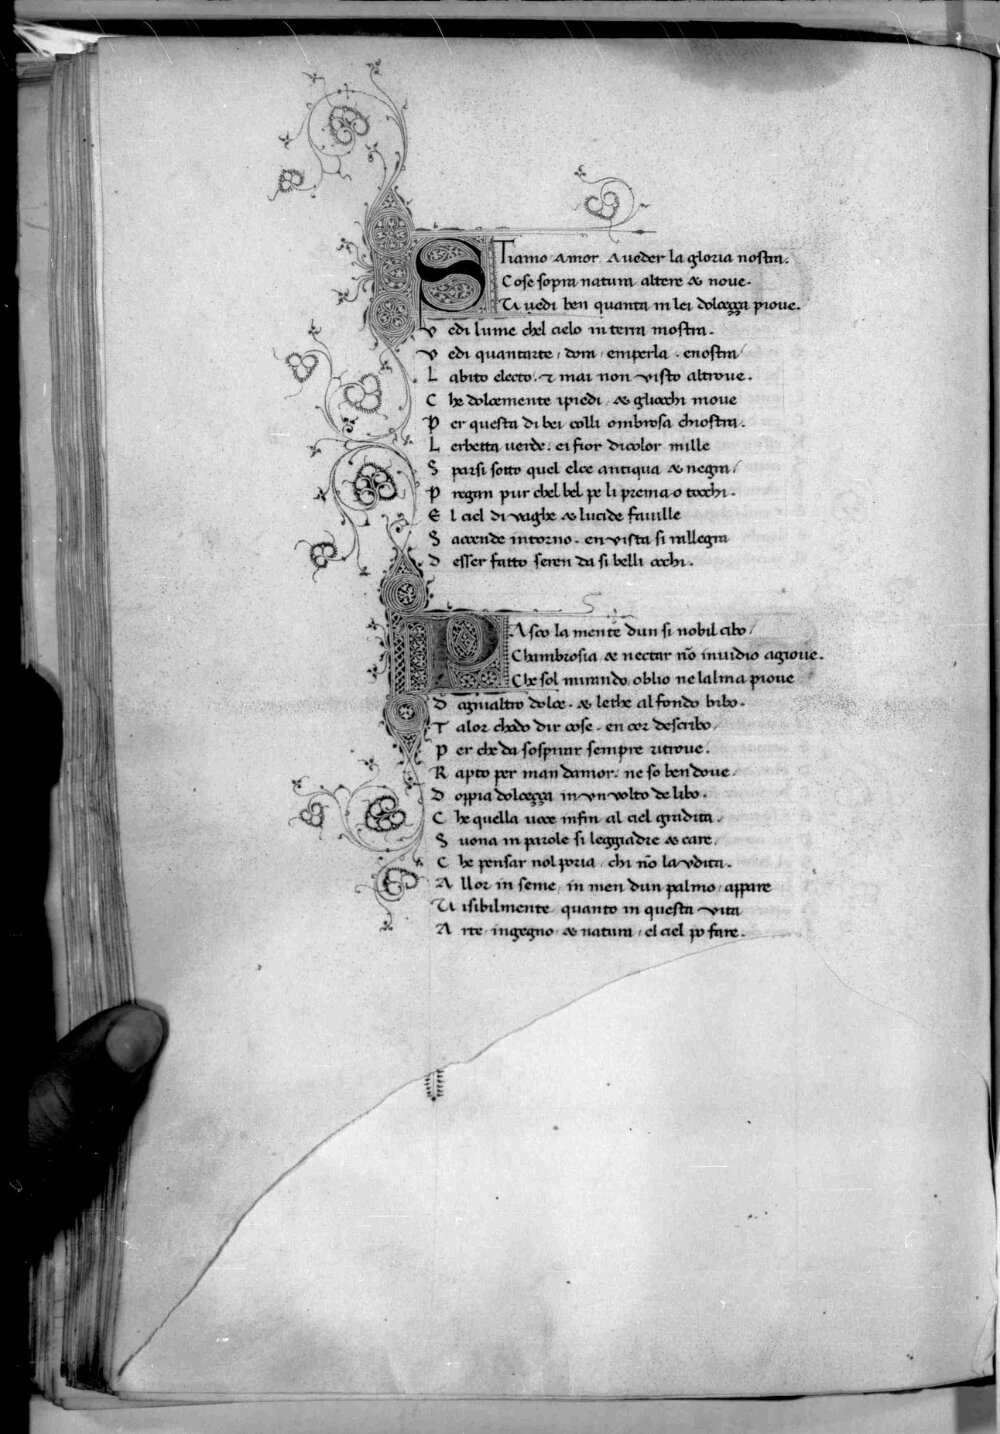 STiamo amor. a ueder la gloria nostra.
Cose sopra natura altere & noue.
Vi uedi ben quanta in lei dolcezza pioue.
vedi lume chel cielo in terra mostra.
vedi quantarte, dora, emperla. enostra/
Labito electo. & mai non visto altroue.
Che dolcemente ipiedi, & gliocchi moue
Per questa di bei colli ombrosa chiostra.
Lerbetta uerde. ei fior dicolor mille
Sparsi sotto quel elce antiqua & negra/
Pregan pur chel bel pe li prema o tocchi.
El ciel di vaghe & lucide fauille
Saccende intorno. en vista si rallegra
Desser fatto seren da si belli occhi.
PAsco la mente dun si nobil cibo/
Chambrosia & nectar nō inuidio agioue.
Che sol mirando, oblio ne lalma pioue
Dagnialtro dolce. & lethe al fondo bibo.
Talor chodo dir cose. en cor describo/
Per che da sospirar sempre ritroue.
Rapto per man damor. ne so ben doue/
Doppia dolcezza in vn volto delibo.
Che quella uoce infin al ciel gradita/
Suona in parole si leggiadre & care/
Che pensar nol poria, chi nō la vdita.
Allor inseme, in men dun palmo, appare
Visibilmente, quanto in questa vita
Arte, ingegno, & natura, el ciel po fare.